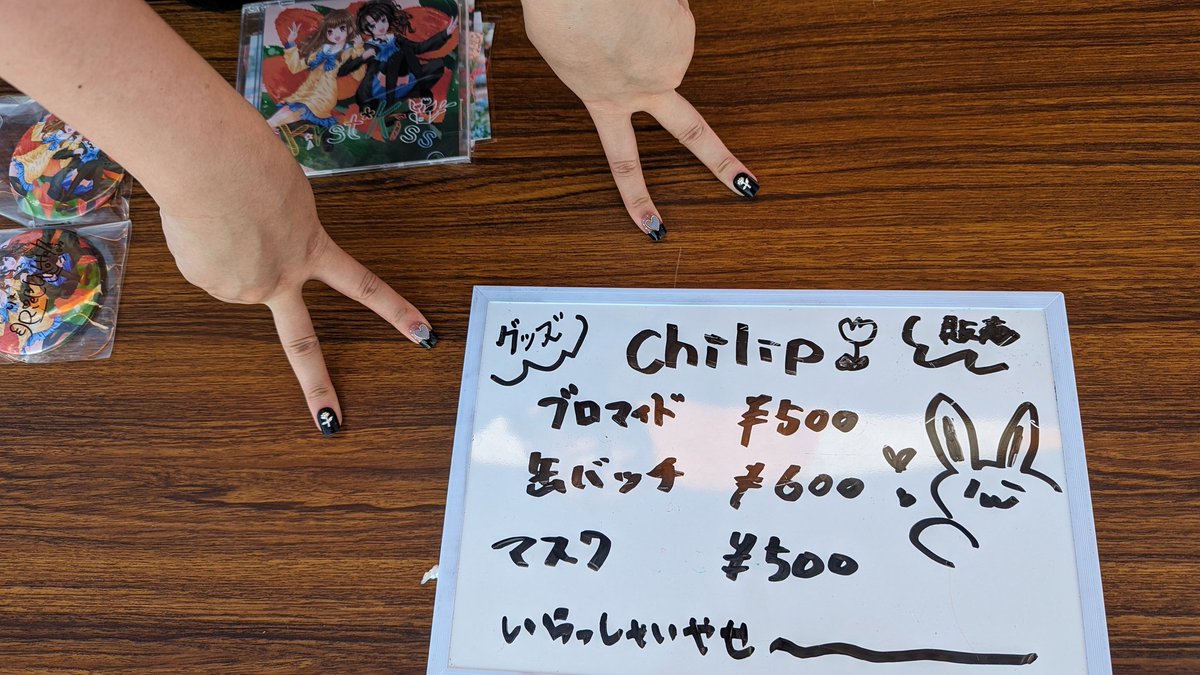 グッズ Chilip 販売
ブロマイド ¥500
缶バッチ ¥600
マスク ¥500
いらっしゃいやせ